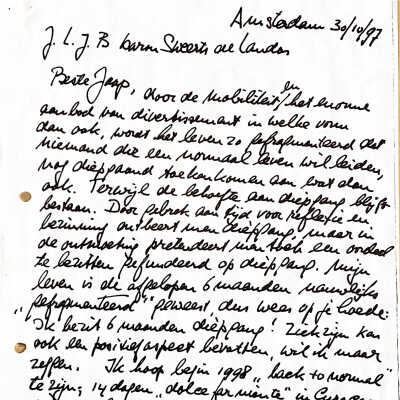 Amsterdam 30/10/97
J. L. J. B baron Sweerts de Landas
Beste Jaap, door de mobiliteit / en het enorme
aanbod van divertissement in welke vorm
dan ook, wordt het leven zo gefragmenteerd dat
niemand die een normaal leven wil leiden,
nog diepgaand toe kan komen aan wat dan
ook. Terwijl de behoefte aan diepgang blijft
bestaan. Door gebrek aan tijd voor reflexie en
bezinning ontbeert men diepgang, maar in
de ontmoeting pretendeert men toch een oordeel
te bezitten gefundeerd op diepgang. Mijn
leven is de afgelopen 6 maanden nauwelijks
"gefragmenteerd" geweest, dus wees op je hoede:
Ik bezit 6 maanden diepgang! Ziek zijn kan
ook een positief aspect bevatten, wil ik maar
zeggen. Ik hoop begin 1998 "back to normal"
te zijn; 14 dagen "dolce far niente" in